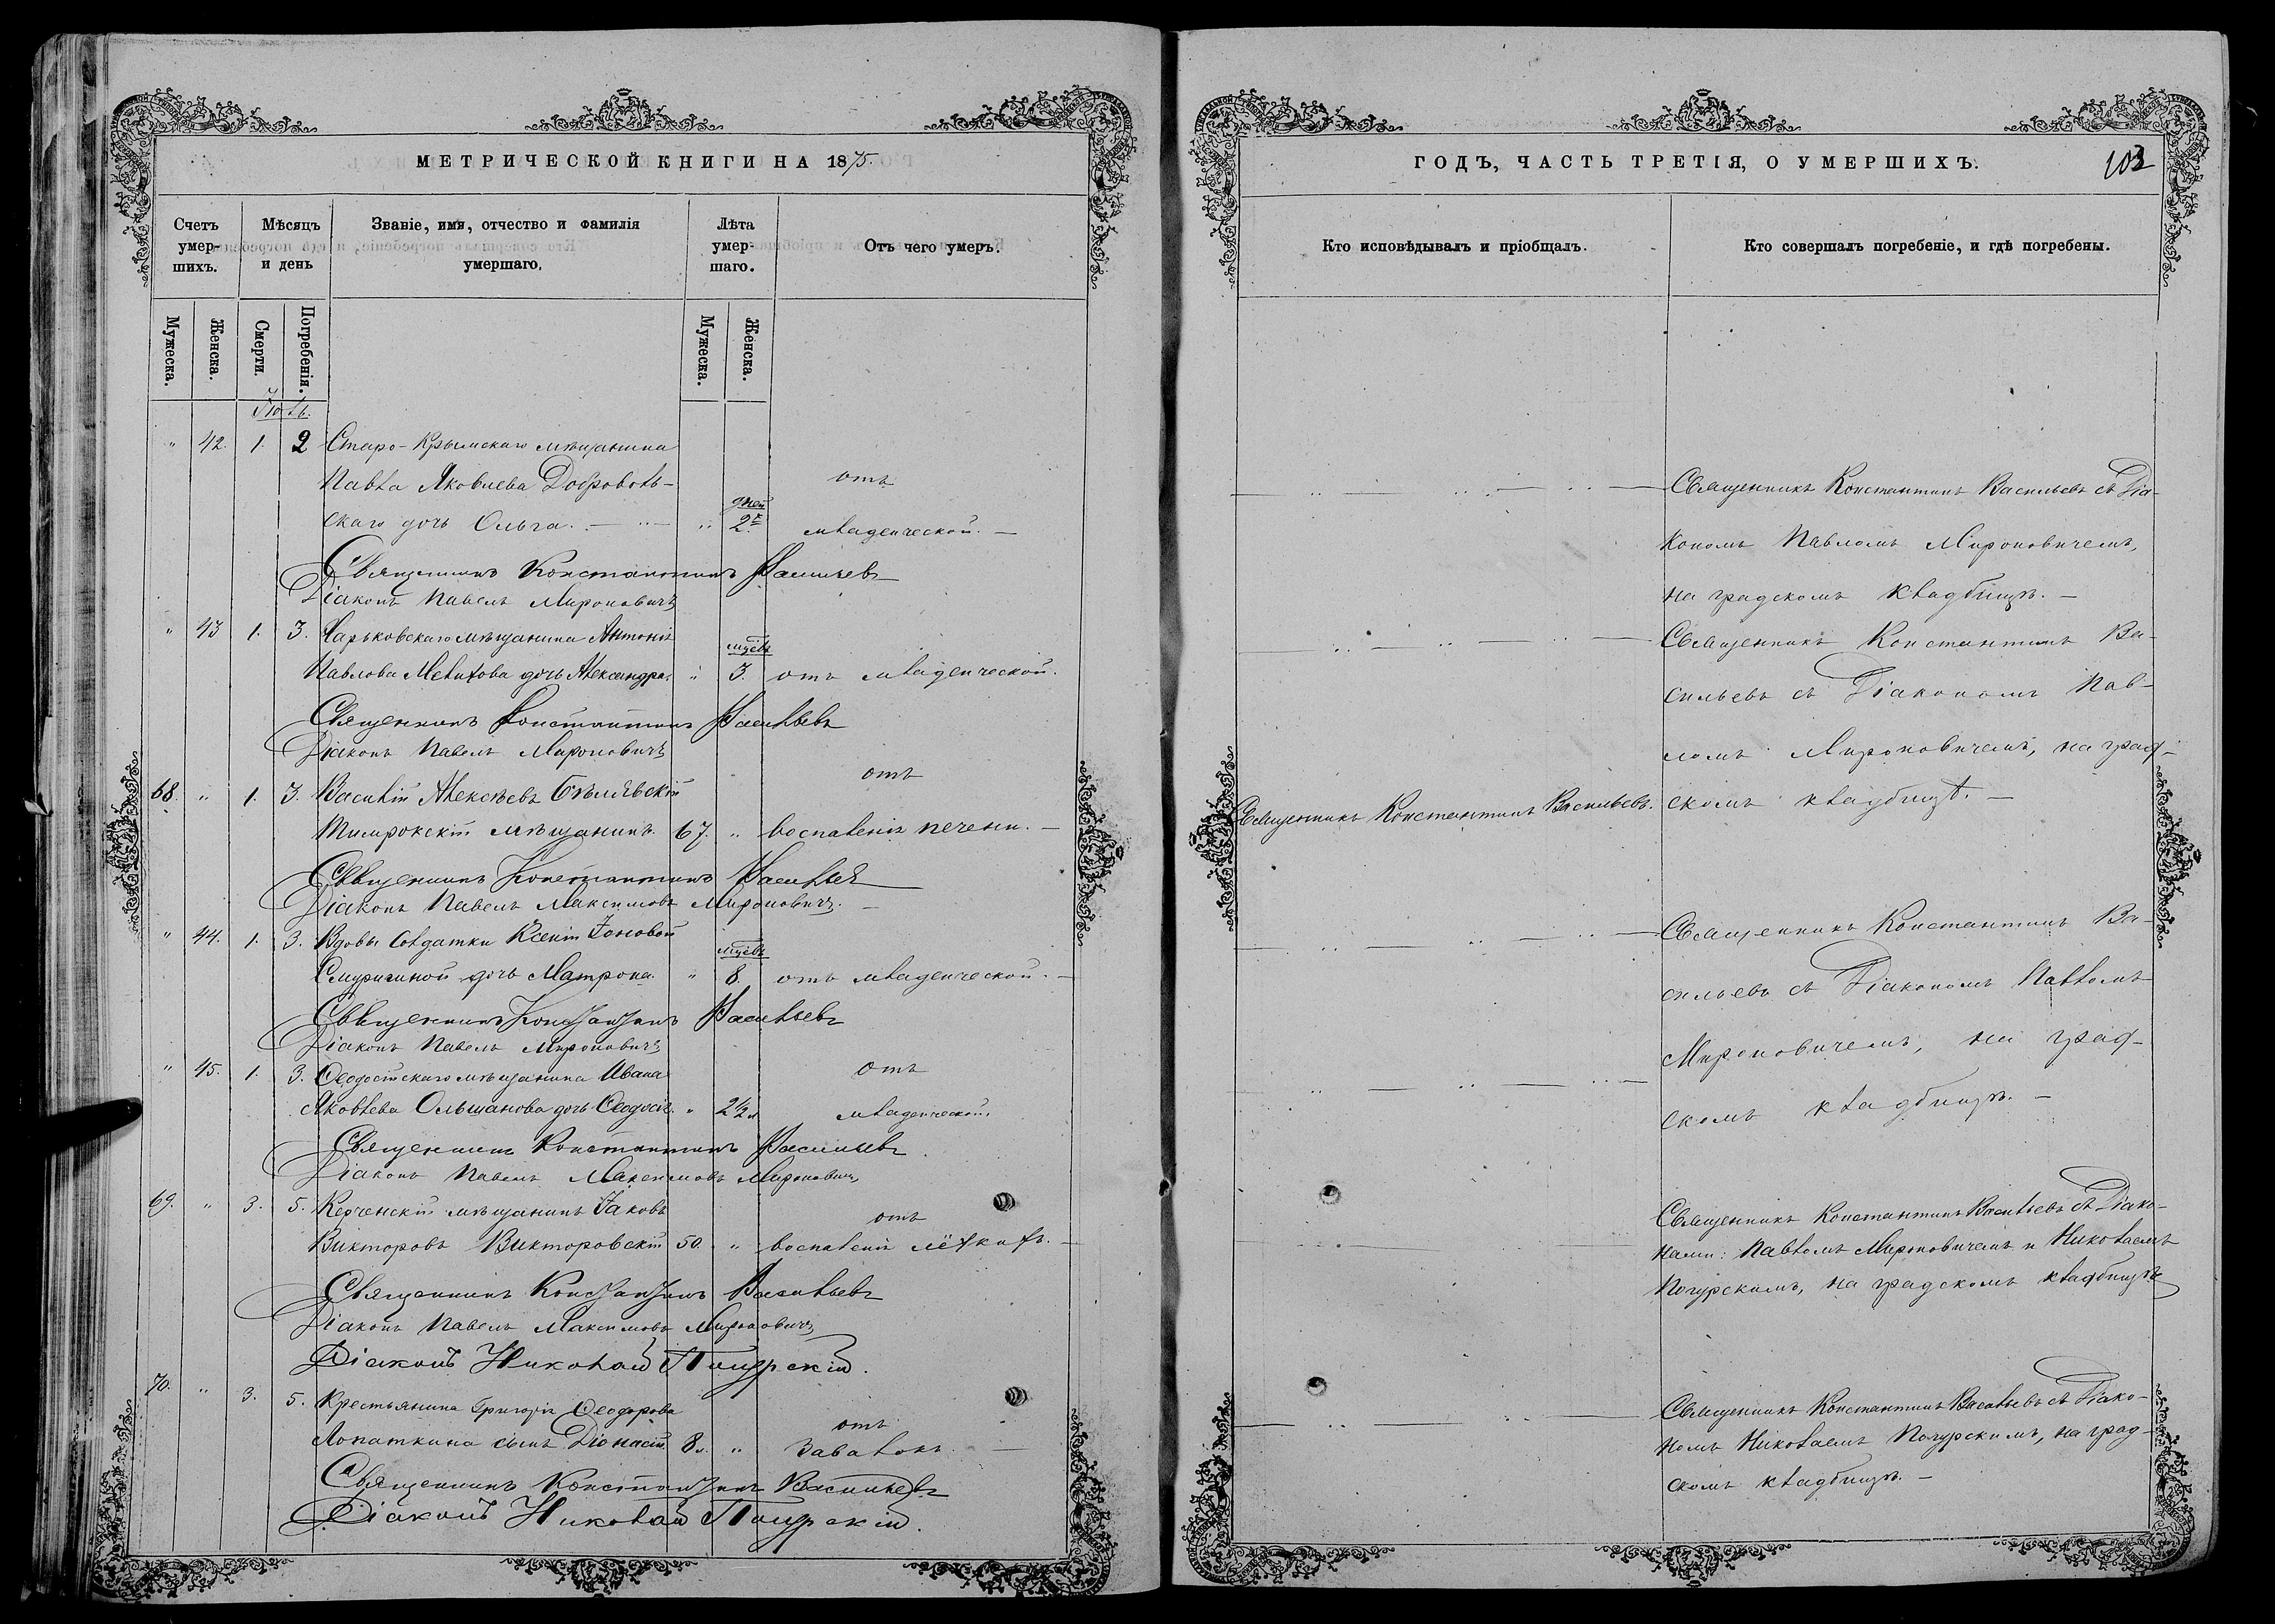 МЕТРИЧЕСКОЙ КНИГИ НА 1875.
Счетъ умер-шихъ.
Мѣсяцъ и день
Званіе, имя, отчество и фамилія умершаго.
Лѣта умер-шаго.
Отъ чего умеръ.
Мужеска.
Женска.
Смерти.
Погребенія.
Мужеска.
Женска.
Іюль.
" 42. 1. 2 Старо-Крымскаго мѣщанина
Павла Яковлева Доброволь- отъ
дней
скаго дочь Ольга. — " — " 2х младенческой. —
Священникъ Константинъ Васильевъ
Діаконъ Павелъ Мироновичъ
" 43 1. 3. Харьковскаго мѣщанина Антонія
мцѣвъ
Павлова дочь Александра. " 3. отъ младенческой.
Священникъ Константинъ Васильевъ
Діаконъ Павелъ Мироновичъ
отъ
68. " 1. 3. Василій Алексѣевъ Бѣлявскій
мѣщанинъ. 67. " воспаленія печени. —
Священникъ Константинъ Васильевъ
Діаконъ Павелъ Максимовъ Мироновичъ. —
" 44. 1. 3. Вдовы Солдатки Ксеніи Іоновой
мцѣвъ
дочь Матрона. " 8. отъ младенческой. —
Священникъ Константинъ Васильевъ
Діаконъ Павелъ Мироновичъ
" 45. 1. 3. Ѳеодосійскаго мѣщанина Ивана отъ
Яковлева Ольшанова дочь Ѳеодосія. " 2½ л младенческой.
Священникъ Константинъ Васильевъ
Діаконъ Павелъ Максимовъ Мироновичъ
69. " 3. 5. Керченскій мѣщанинъ Іаковъ
отъ
Викторовъ Викторовскій 50. " воспаленія лёхкихъ. —
Священникъ Константинъ Васильевъ
Діаконъ Павелъ Максимовъ Мироновичъ
Діаконъ Николай Погурскій.
70. " 3. 5. Крестьянина Григорія Ѳеодорова
отъ
Лопаткина сынъ Діонисій 8 л. " Завалокъ. —
Священникъ Константинъ Васильевъ
Діаконъ Николай Погурскій.
ГОДЪ, ЧАСТЬ ТРЕТІЯ, О УМЕРШИХЪ.
103
Кто исповѣдывалъ и пріобщалъ.
Кто совершалъ погребеніе, и гдѣ погребены.
Священникъ Константинъ Васильевъ съ Діа-
кономъ Павломъ Мироновичемъ,
на градскомъ кладбищѣ. —
Священникъ Константинъ Ва-
сильевъ съ Діакономъ Пав-
ломъ Мироновичемъ, на град-
Священникъ Константинъ Васильевъ. скомъ кладбищѣ. —
Священникъ Константинъ Ва-
сильевъ съ Діакономъ Павломъ
Мироновичемъ, на град-
скомъ кладбищѣ. —
Священникъ Константинъ Васильевъ съ Діако-
нами: Павломъ Мироновичемъ и Николаемъ
Погурскимъ, на градскомъ кладбищѣ
Священникъ Константинъ Васильевъ съ Діако-
номъ Николаемъ Погурскимъ, на град-
скомъ кладбищѣ. —